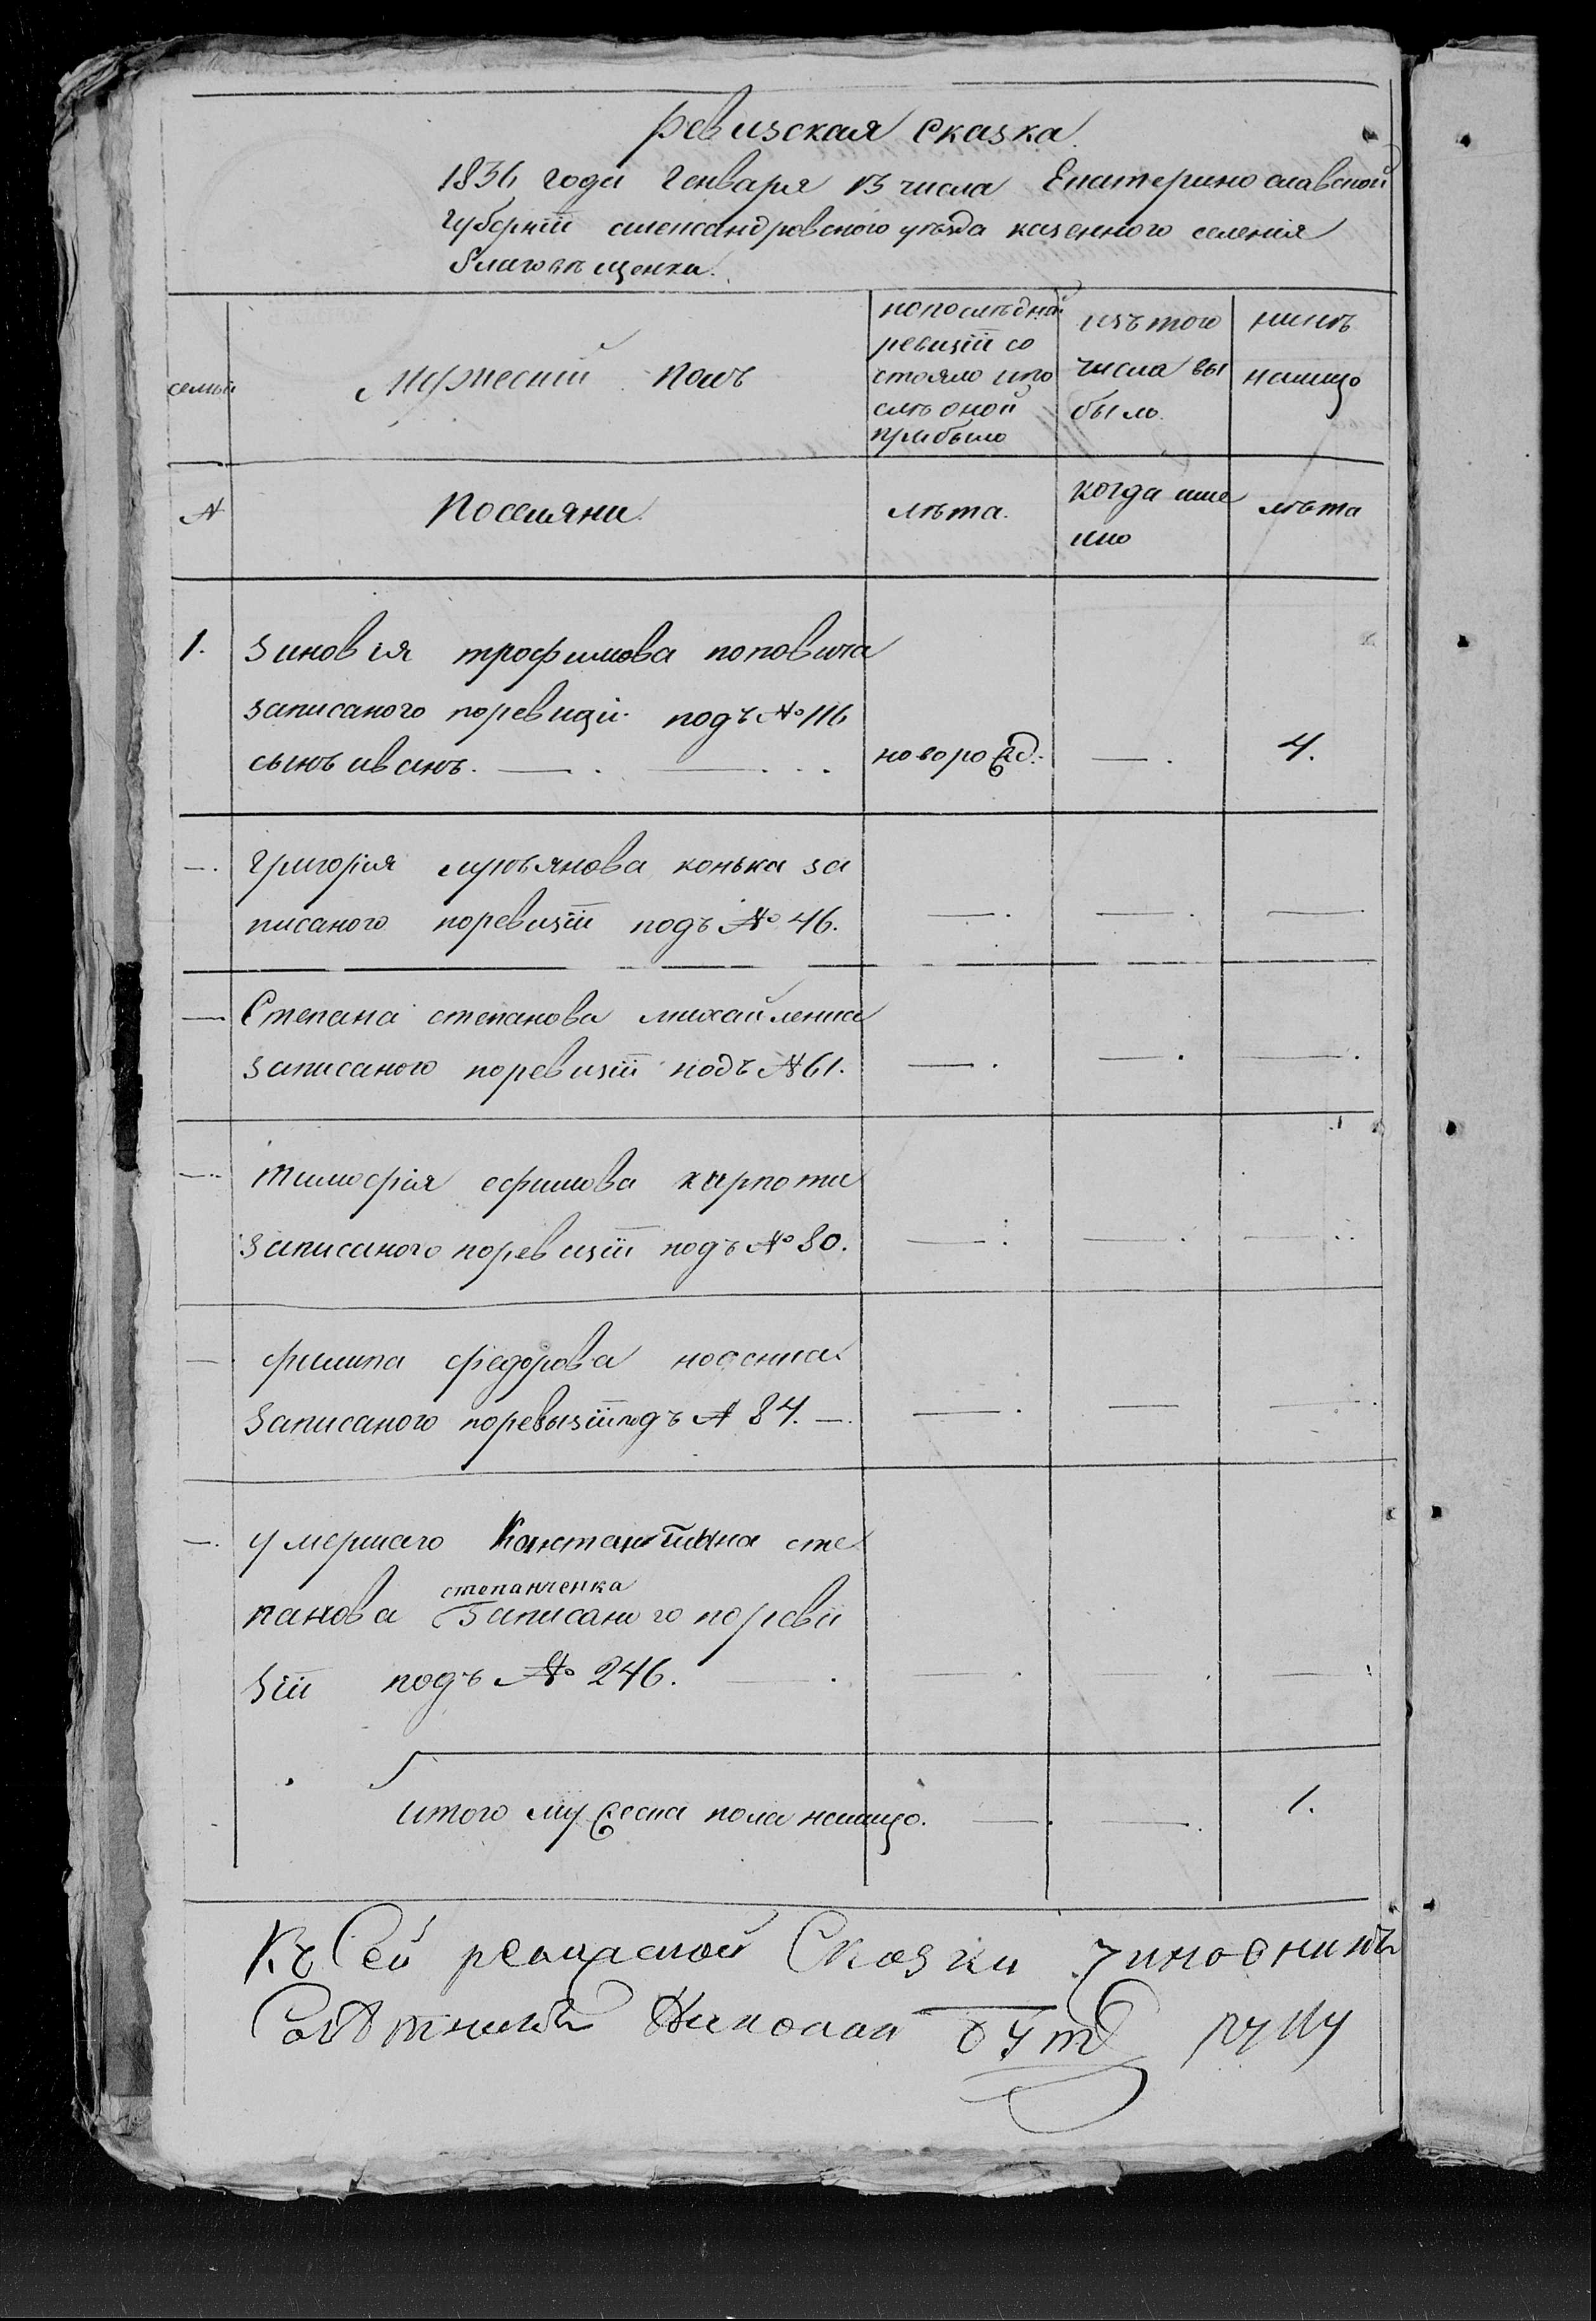 Ревизская Сказка.
1836 года Генваря 13 числа Екатеринославской
Губернїи александровского уѣзда казенного селения
Благовѣщенка.
семьи
Мужеский полъ
попослѣдней
ревизїи со
стояло ипо
слѣ оной
прибыло
изъ того
числа вы
было.
нинѣ
налицо
№
Поселяни.
лѣта.
когда име
нно
лѣта
1. Зиновия трофимова поповича
записаного поревизїи подъ № 116
сынъ иванъ. новорожд. — 4.
— Григория лукъянова конька за
писаного поревизїи подъ № 46. — — —
— Степана степанова михайленка
записаного поревизїи подъ № 61. — — —
— тимофїя ефимова карпота
записаного поревизїи подъ № 80. — — —
— филипа федорова носенка
записаного поревызїи подъ № 84. — — — —
— умершаго Константина сте
степанченка
панова записаного пореви
зїи подъ № 246. — — —
итого мужеска пола налицо. — — 1.
Къ Сей ревизской Сказки чиновникъ
Совѣтникъ Николай руку